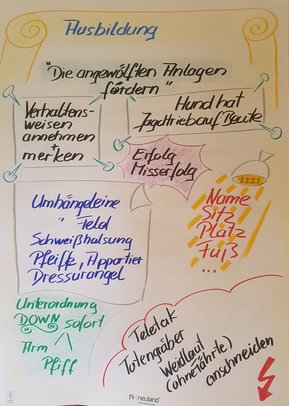 Ausbildung
"Die angewölften Anlagen
fördern"
Verhaltens-
weisen
annehmen
+
merken
Hund hat
Jagdtrieb auf Beute
Erfolg
Misserfolg
Umhängeleine
" Feld
Schweißhalsung
Pfeife, Apportier
Dressurangel
Name
Sitz
Platz
Fuß
...
Unterordnung
DOWN sofort
Arm
Pfiff
Teletak
Totengräber
Weidlaut
(ohne Fährte)
anschneiden
neuland